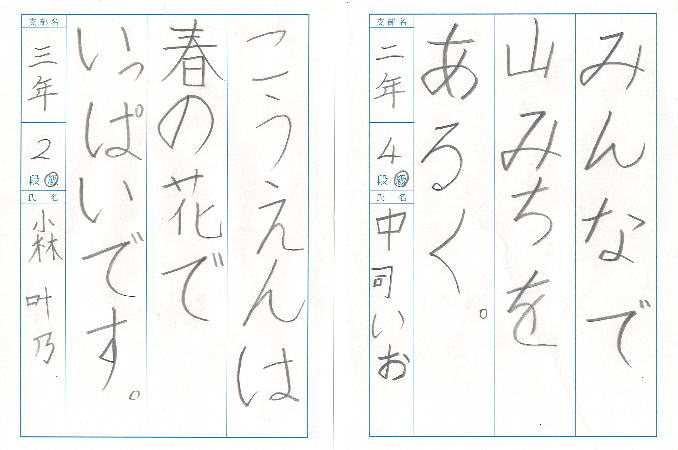 みんなで
山みちを
あるく。
支部名
二年
4
段級
氏名
中司いお
こうえんは
春の花で
いっぱいです。
支部名
三年
2
段級
氏名
小森叶乃